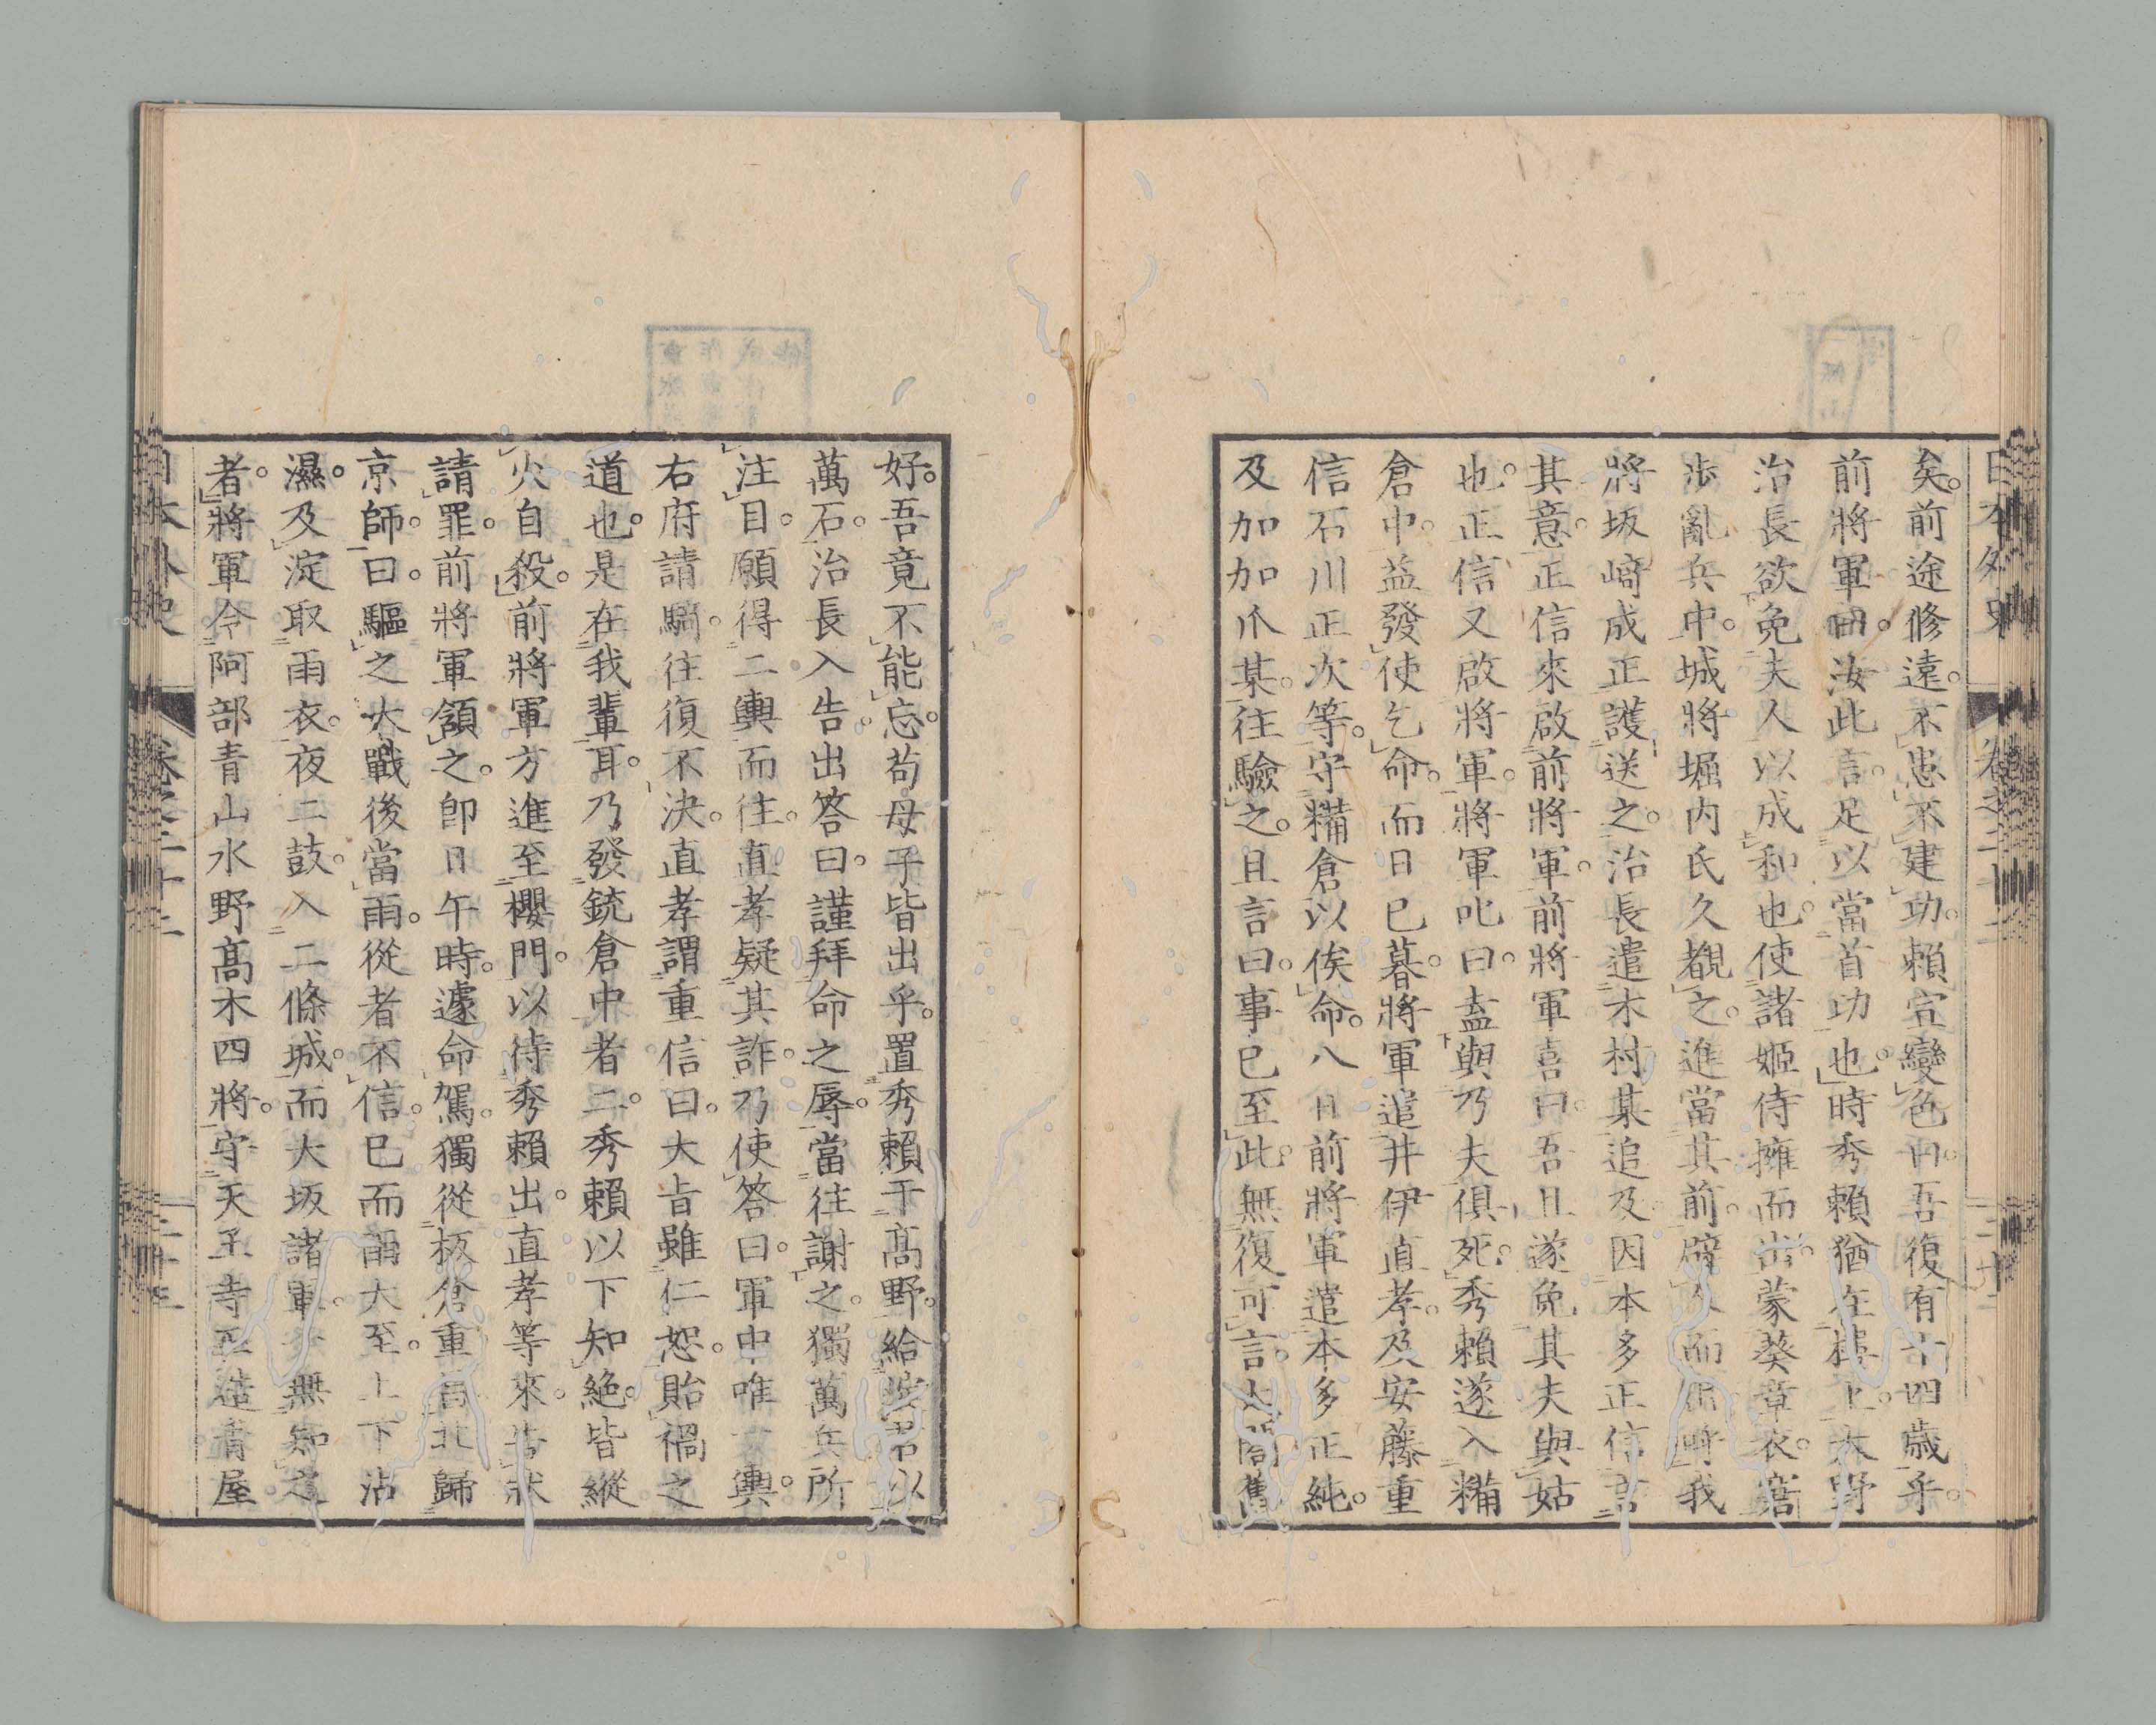 矣。前途修遠。不患不建功。賴宣變色曰。吾復有十四歳乎。
前將軍曰。汝此言。足以當首功也。時秀賴猶在樓上。大野
治長欲免夫人以成和也。使諸姬侍擁而出。蒙葵章衣。簷
步亂兵中。城將堀内氏久覩之。進當其前。辟人而
將坂﨑成正護送之。治長遣木村某追及。因本多正信言
其意。正信來啟前將軍。前將軍喜曰。吾且遂免其夫與姑
也。正信又啟將軍。將軍叱曰。盍與乃夫倶死。秀賴遂入糒
倉中。益發使乞命。而日已暮。將軍遣井伊直孝。及安藤重
信石川正次等。守糒倉以俟命。八日前將軍遣本多正純。
及加加爪某。往驗之。且言曰。事已至此。無復可言。大閤舊
好。吾竟不能忘。苟母子皆出乎。置秀賴于髙野。給
萬石。治長入告。出答曰。謹拜命之辱。當往謝之。獨萬兵所
注目。願得二輿而往。直孝疑其詐。乃使答曰。軍中唯一輿。
右府請騎。往復不決。直孝謂重信曰。大旨雖仁恕。貽禍之
道也。是在我輩耳。乃發銃倉中者二。秀賴以下知絶。皆縱
火自殺。前將軍方進至櫻門。以待秀賴出。直孝等來。告狀
請罪。前將軍頷之。卽日午時。遽命駕。獨從板倉重昌北歸
京師。曰。驅之。大戰後當雨。從者不信。已而雨大至。上下沾
濕。及淀取雨衣。夜二鼓。入二條城。而大坂諸軍。無知之
者。將軍令阿部青山水野髙木四將。守天王寺
日本外史 卷之二十二